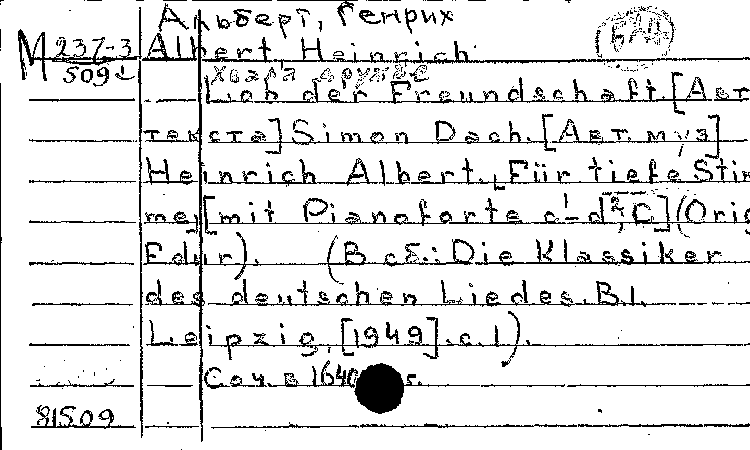 Альберт, Генрих
М 237-3 Albert Heinrich
509
Хвала дружбе
Lob der Freundschaft. [Авт.
текста] Simon Dach. [Авт. муз]
Heinrich Albert. Für tiefe Stim
me, [mit Pianoforte c¹-d², C] (Orig
F dur). (В сб.: Die Klassiker
des deutschen Liedes. B.I.
Leipzig, [1949]. с. 1).
Соч. в 1640 г.
81509